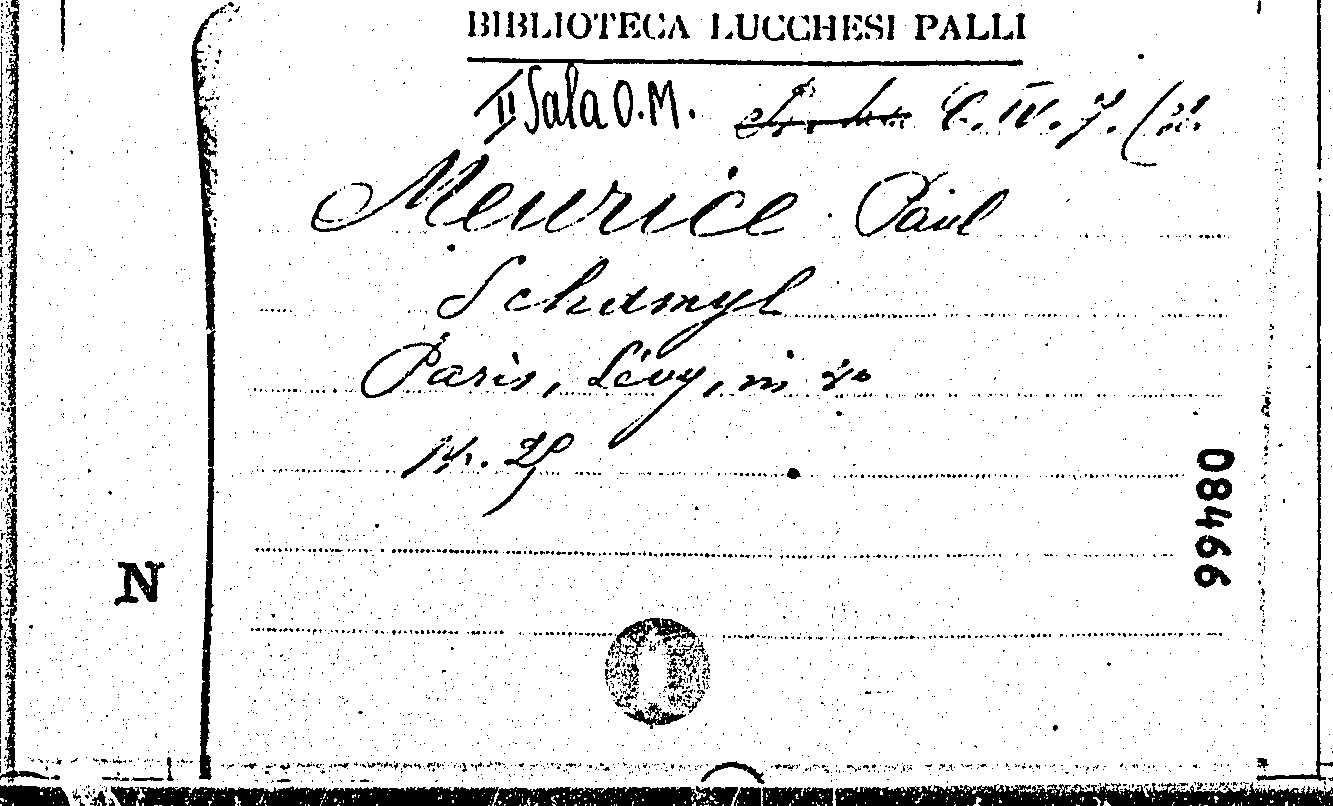 BIBLIOTECA LUCCHESI PALLI
II Sala O.M. C. IV. 7. (
Meurice Paul
Schamyl
Paris, Lévy, in
08466
N